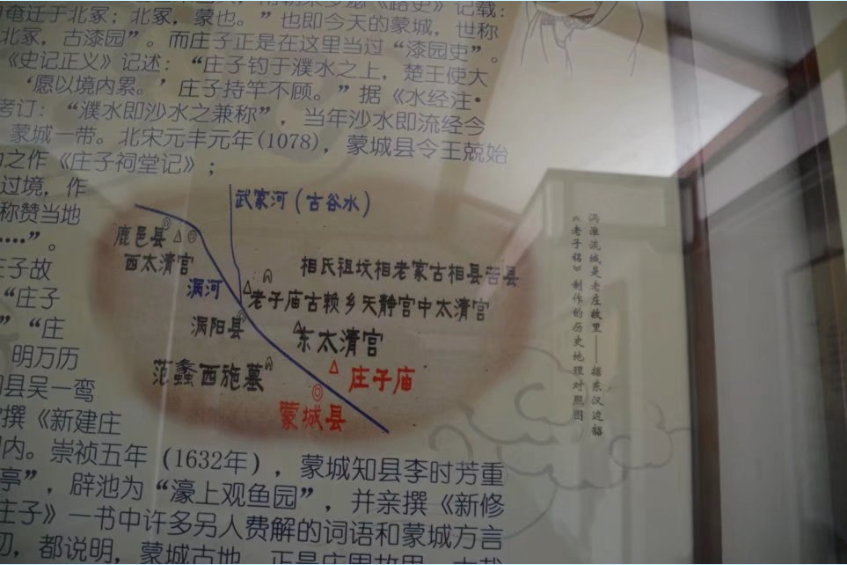 奄迁于北冢；北冢，蒙也。”也即今天的蒙城，世称
北冢，古漆园”。而庄子正是在这里当过“漆园吏”。
《史记正义》记述：“庄子钓于濮水之上，楚王使大
‘愿以境内累。’庄子持竿不顾。”据《水经注·
考订：“濮水即沙水之兼称”，当年沙水即流经今
蒙城一带。北宋元丰元年(1078)，蒙城县令王兢始
之作《庄子祠堂记》；
过境，作
称赞当地
……”。
庄子故
“庄子
”“庄
明万历
县吴一鸾
撰《新建庄
内。崇祯五年（1632年），蒙城知县李时芳重
亭”，辟池为“濠上观鱼园”，并亲撰《新修
庄子》一书中许多另人费解的词语和蒙城方言
都说明，蒙城古地，正是庄周故里
武家河（古谷水）
鹿邑县
西太清宫
涡河
相氏祖坟相老家古相县苦县
老子庙古赖乡天静宫中太清宫
涡阳县
东太清宫
范蠡西施墓
庄子庙
蒙城县
涡淮流域是老庄故里——据东汉边韶
《老子铭》制作的历史地理对照图